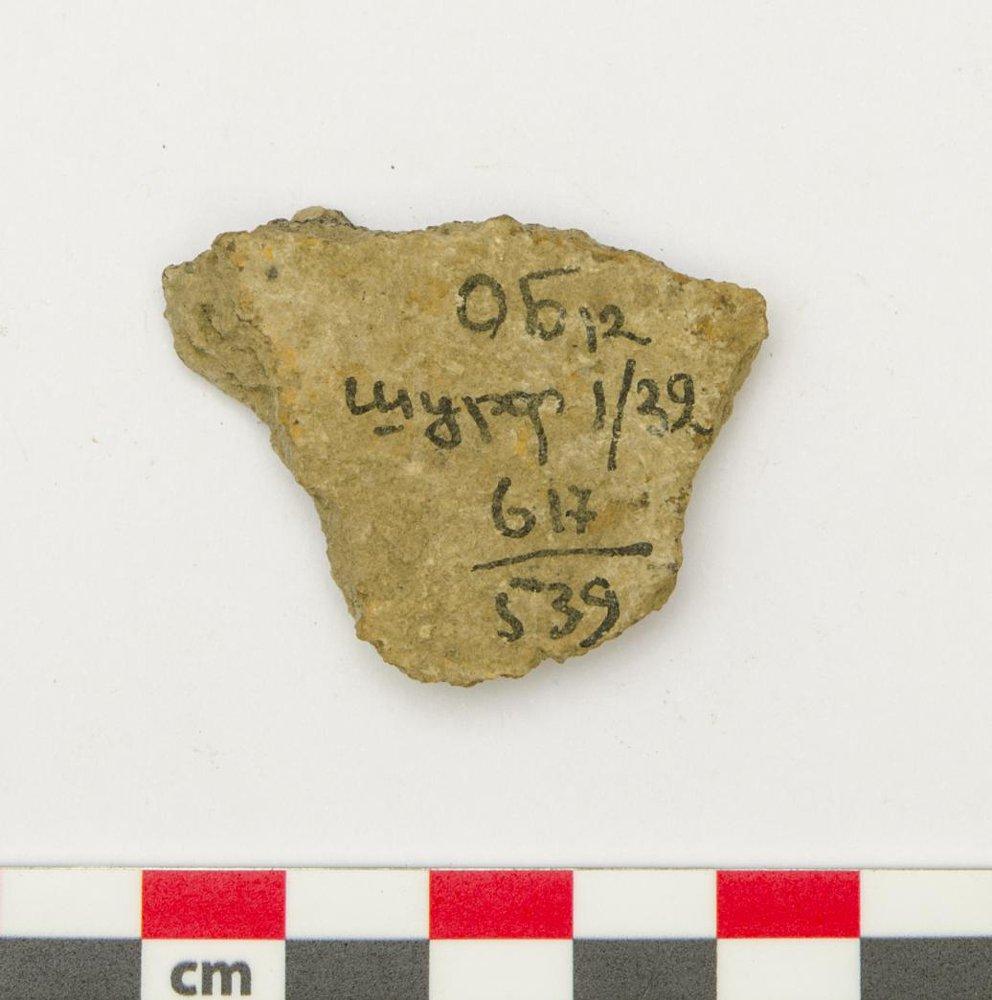 ОБ12
шурф 1/32
617
539
cm